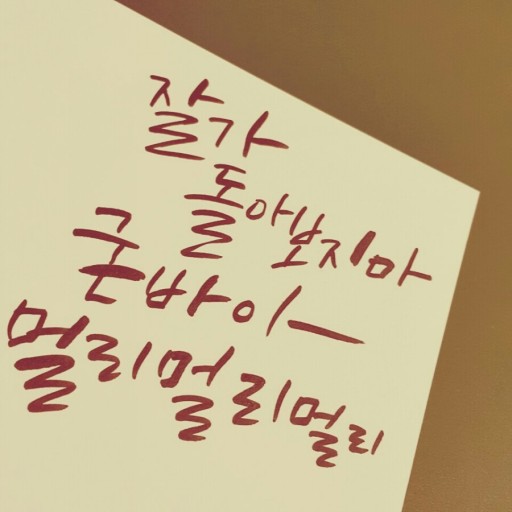 잘가
돌아보지마
굳바이ー
멀리멀리멀리